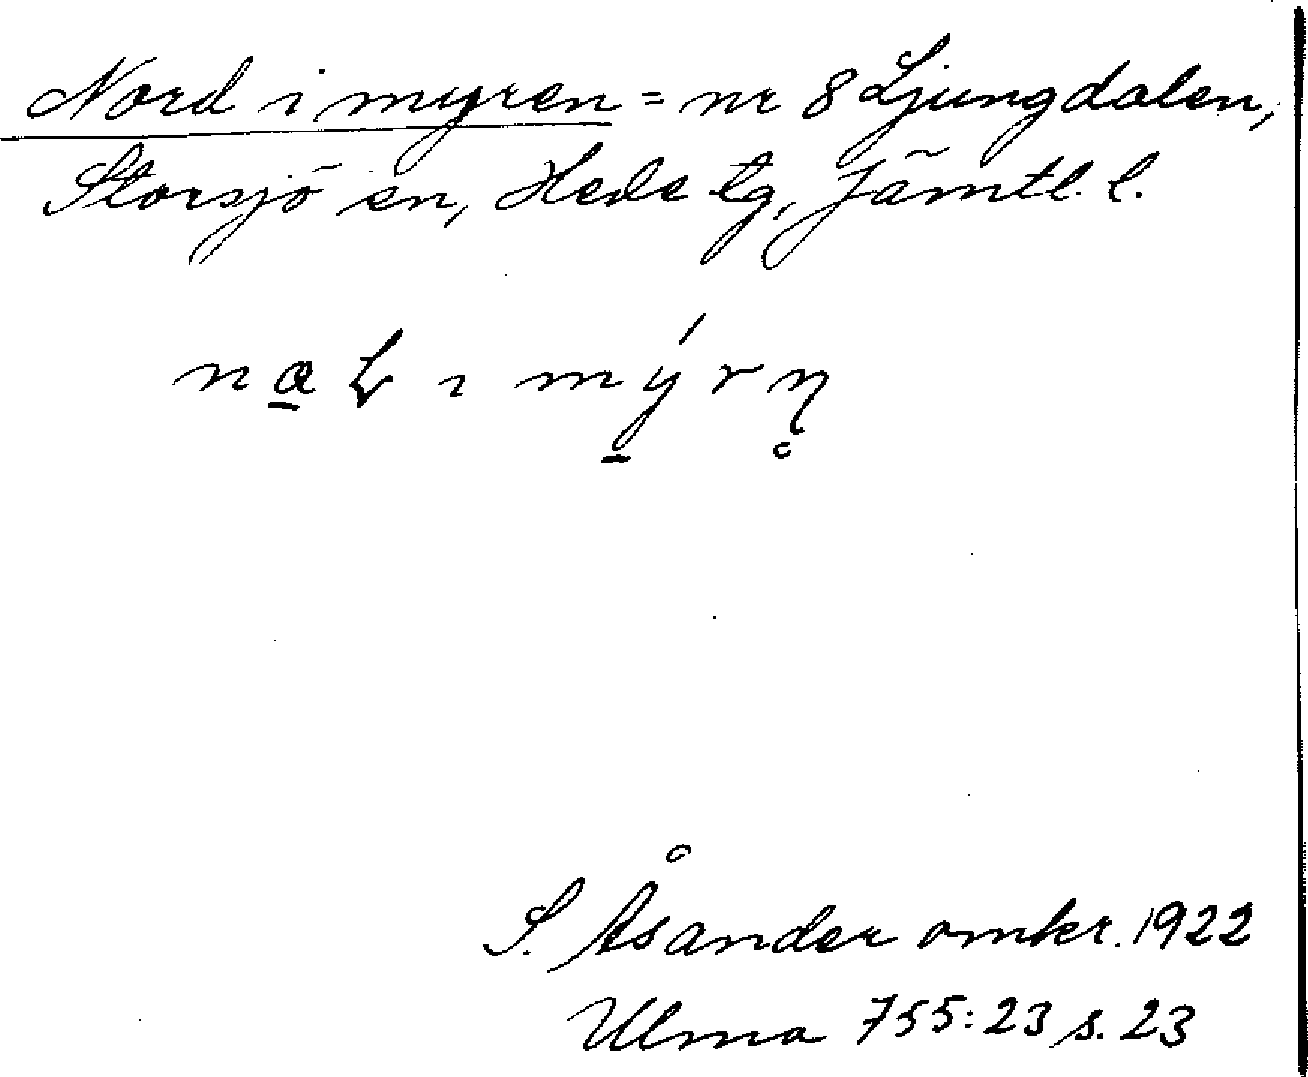 Nord i myren = nr 8 Ljungdalen,
Storsjö sn, Hede tg, Jämtl. l.
S. Åsander omkr. 1922
Ulma 755:23 s. 23